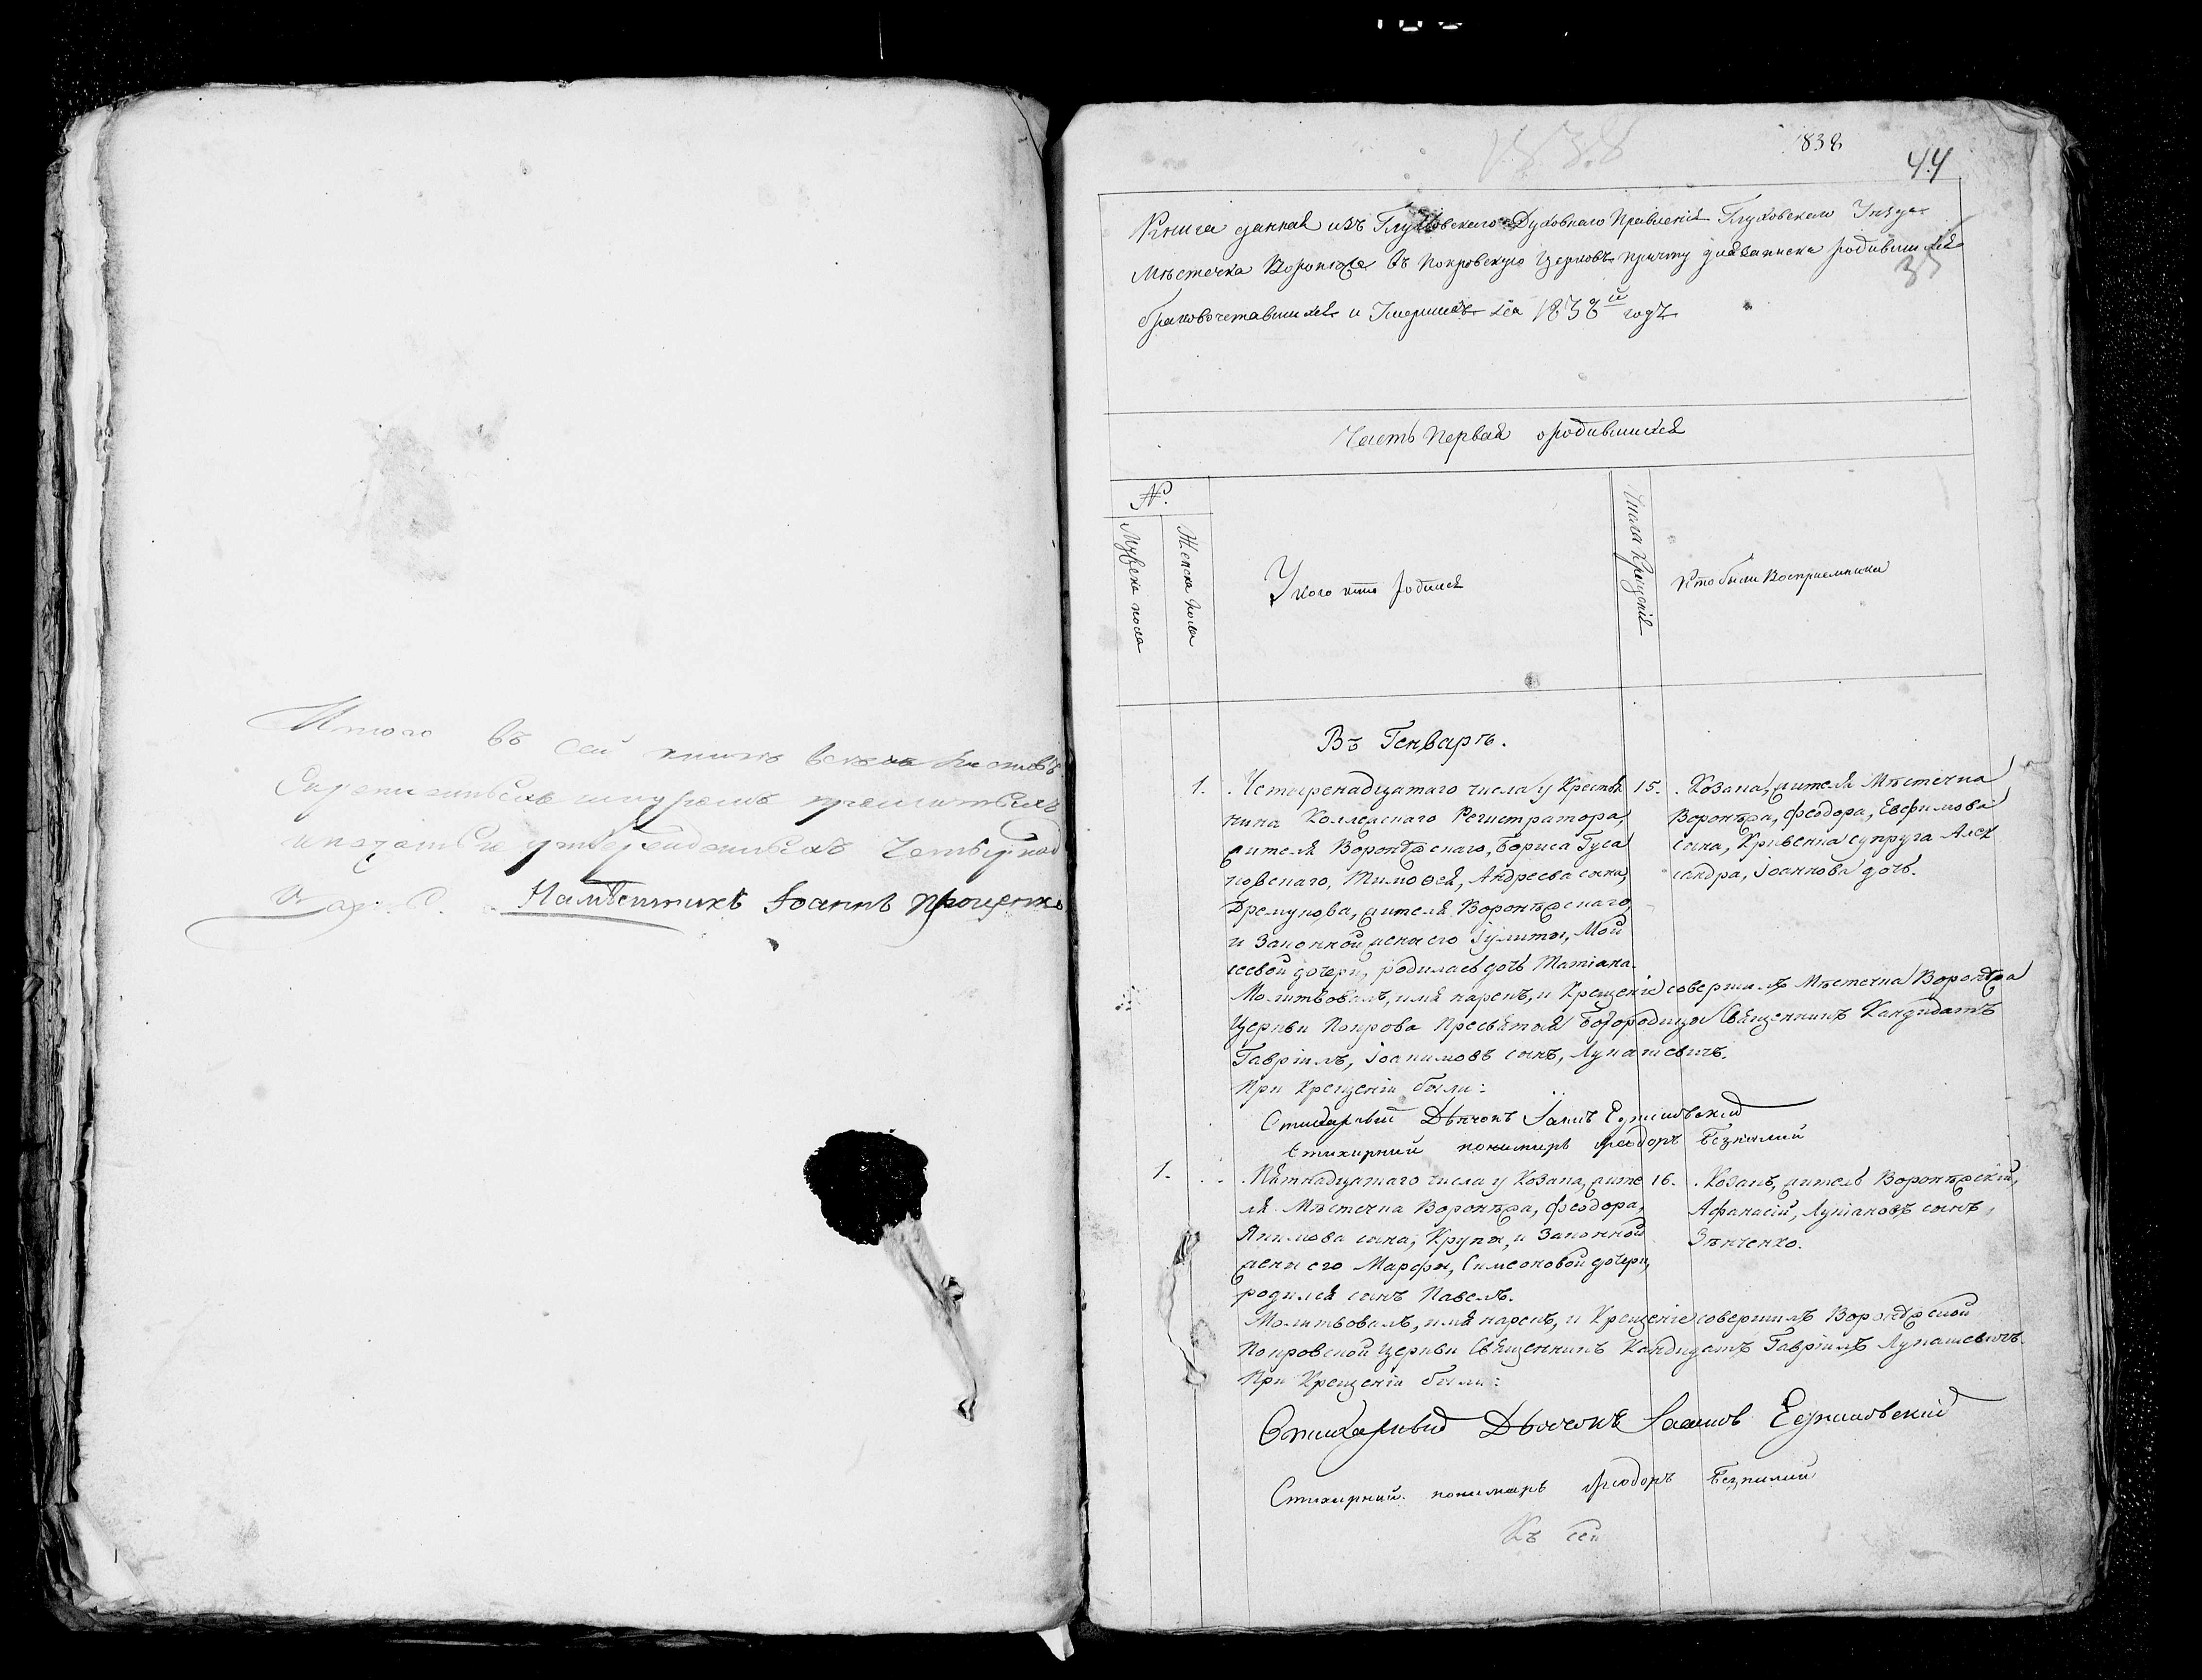 Итого въ сей книгѣ всехъ листовъ
Скрепленныхъ шнуромъ прошитыхъ
и печатью утвержденныхъ Четырнад
Намѣстникъ Іоаннъ Проценко
1838
1838
44
Книга данная изъ Глуховскаго Духовнаго Правленія Глуховскаго Уѣзда
Мѣстечка Воронежа въ Покровскую Церковь причту для записки родившихся
37
браковочетавшихся и Умершихъ на 1838й годъ
Часть Первая о родившихся
№.
Мужеска пола
Женска пола
У кого кто родился
Числа Крещенія
Кто были Восприемники
Въ Генварѣ.
1. Четыренадцатаго числа у Крестья
нина Коллежскаго Регистратора,
жителя Воронѣжскаго, Бориса Гуса
ковскаго, Тимофея, Андреева сына,
Дремухова, жителя Воронѣжскаго,
и Законной жены его Іулиты, Мой
сеевой дочери, родилась дочь Татіана.
15. Козака, жителя Мѣстечка
Воронѣжа, Феодора, Евфимова
сына, Кривенка супруга Алек
сандра, Іоаннова дочь.
Молитвовалъ, имя нарекъ, и Крещеніе совершилъ Мѣстечка Воронѣжа
Церкви Покрова Пресвятыя Богородицы Священникъ Кандидатъ
Гавріилъ, Іоакимовъ сынъ, Лукашевичъ.
При Крещеніи были:
Стихарный Дьячокъ Іаковъ
Стихарный пономарь Феодоръ
1. Пятнадцатаго числа у Козака, жите
ля Мѣстечка Воронѣжа, Феодора,
Якимова сына, Крупы, и Законной
жены его Марфы, Симеоновой дочери,
родился сынъ Павелъ.
16. Козакъ, житель Воронѣжскій,
Афанасій, Лукіановъ сынъ,
Зѣнченко.
Молитвовалъ, имя нарекъ, и Крещеніе совершилъ Воронѣжской
Покровской Церкви Священникъ Кандидатъ Гавріилъ Лукашевичъ.
При Крещеніи были:
Стихарный Дьячокъ Іаковъ
Стихарный пономарь Феодоръ
Къ сей